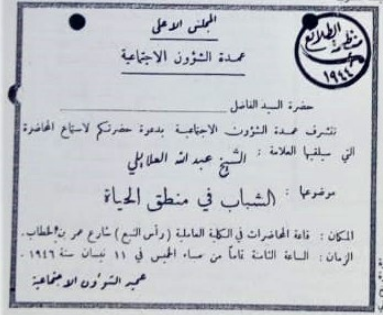 المجلس الاعلى
عمدة الشؤون الاجتماعية
منظمة الطلائع
١٩٤٤
حضرة السيد الفاضل
تتشرف عمدة الشؤون الاجتماعية بدعوة حضرتكم لاستماع المحاضرة
التي سيلقيها العلامة : الشيخ عبد الله العلايلي
موضوعها : الشباب في منطق الحياة
المكان : قاعة المحاضرات في الكلية العاملية (رأس النبع) شارع عمر بن الخطاب .
الزمان : الساعة الثامنة تماماً من مساء الخميس في ١١ نيسان سنة ١٩٤٦
عميد الشؤون الاجتماعية